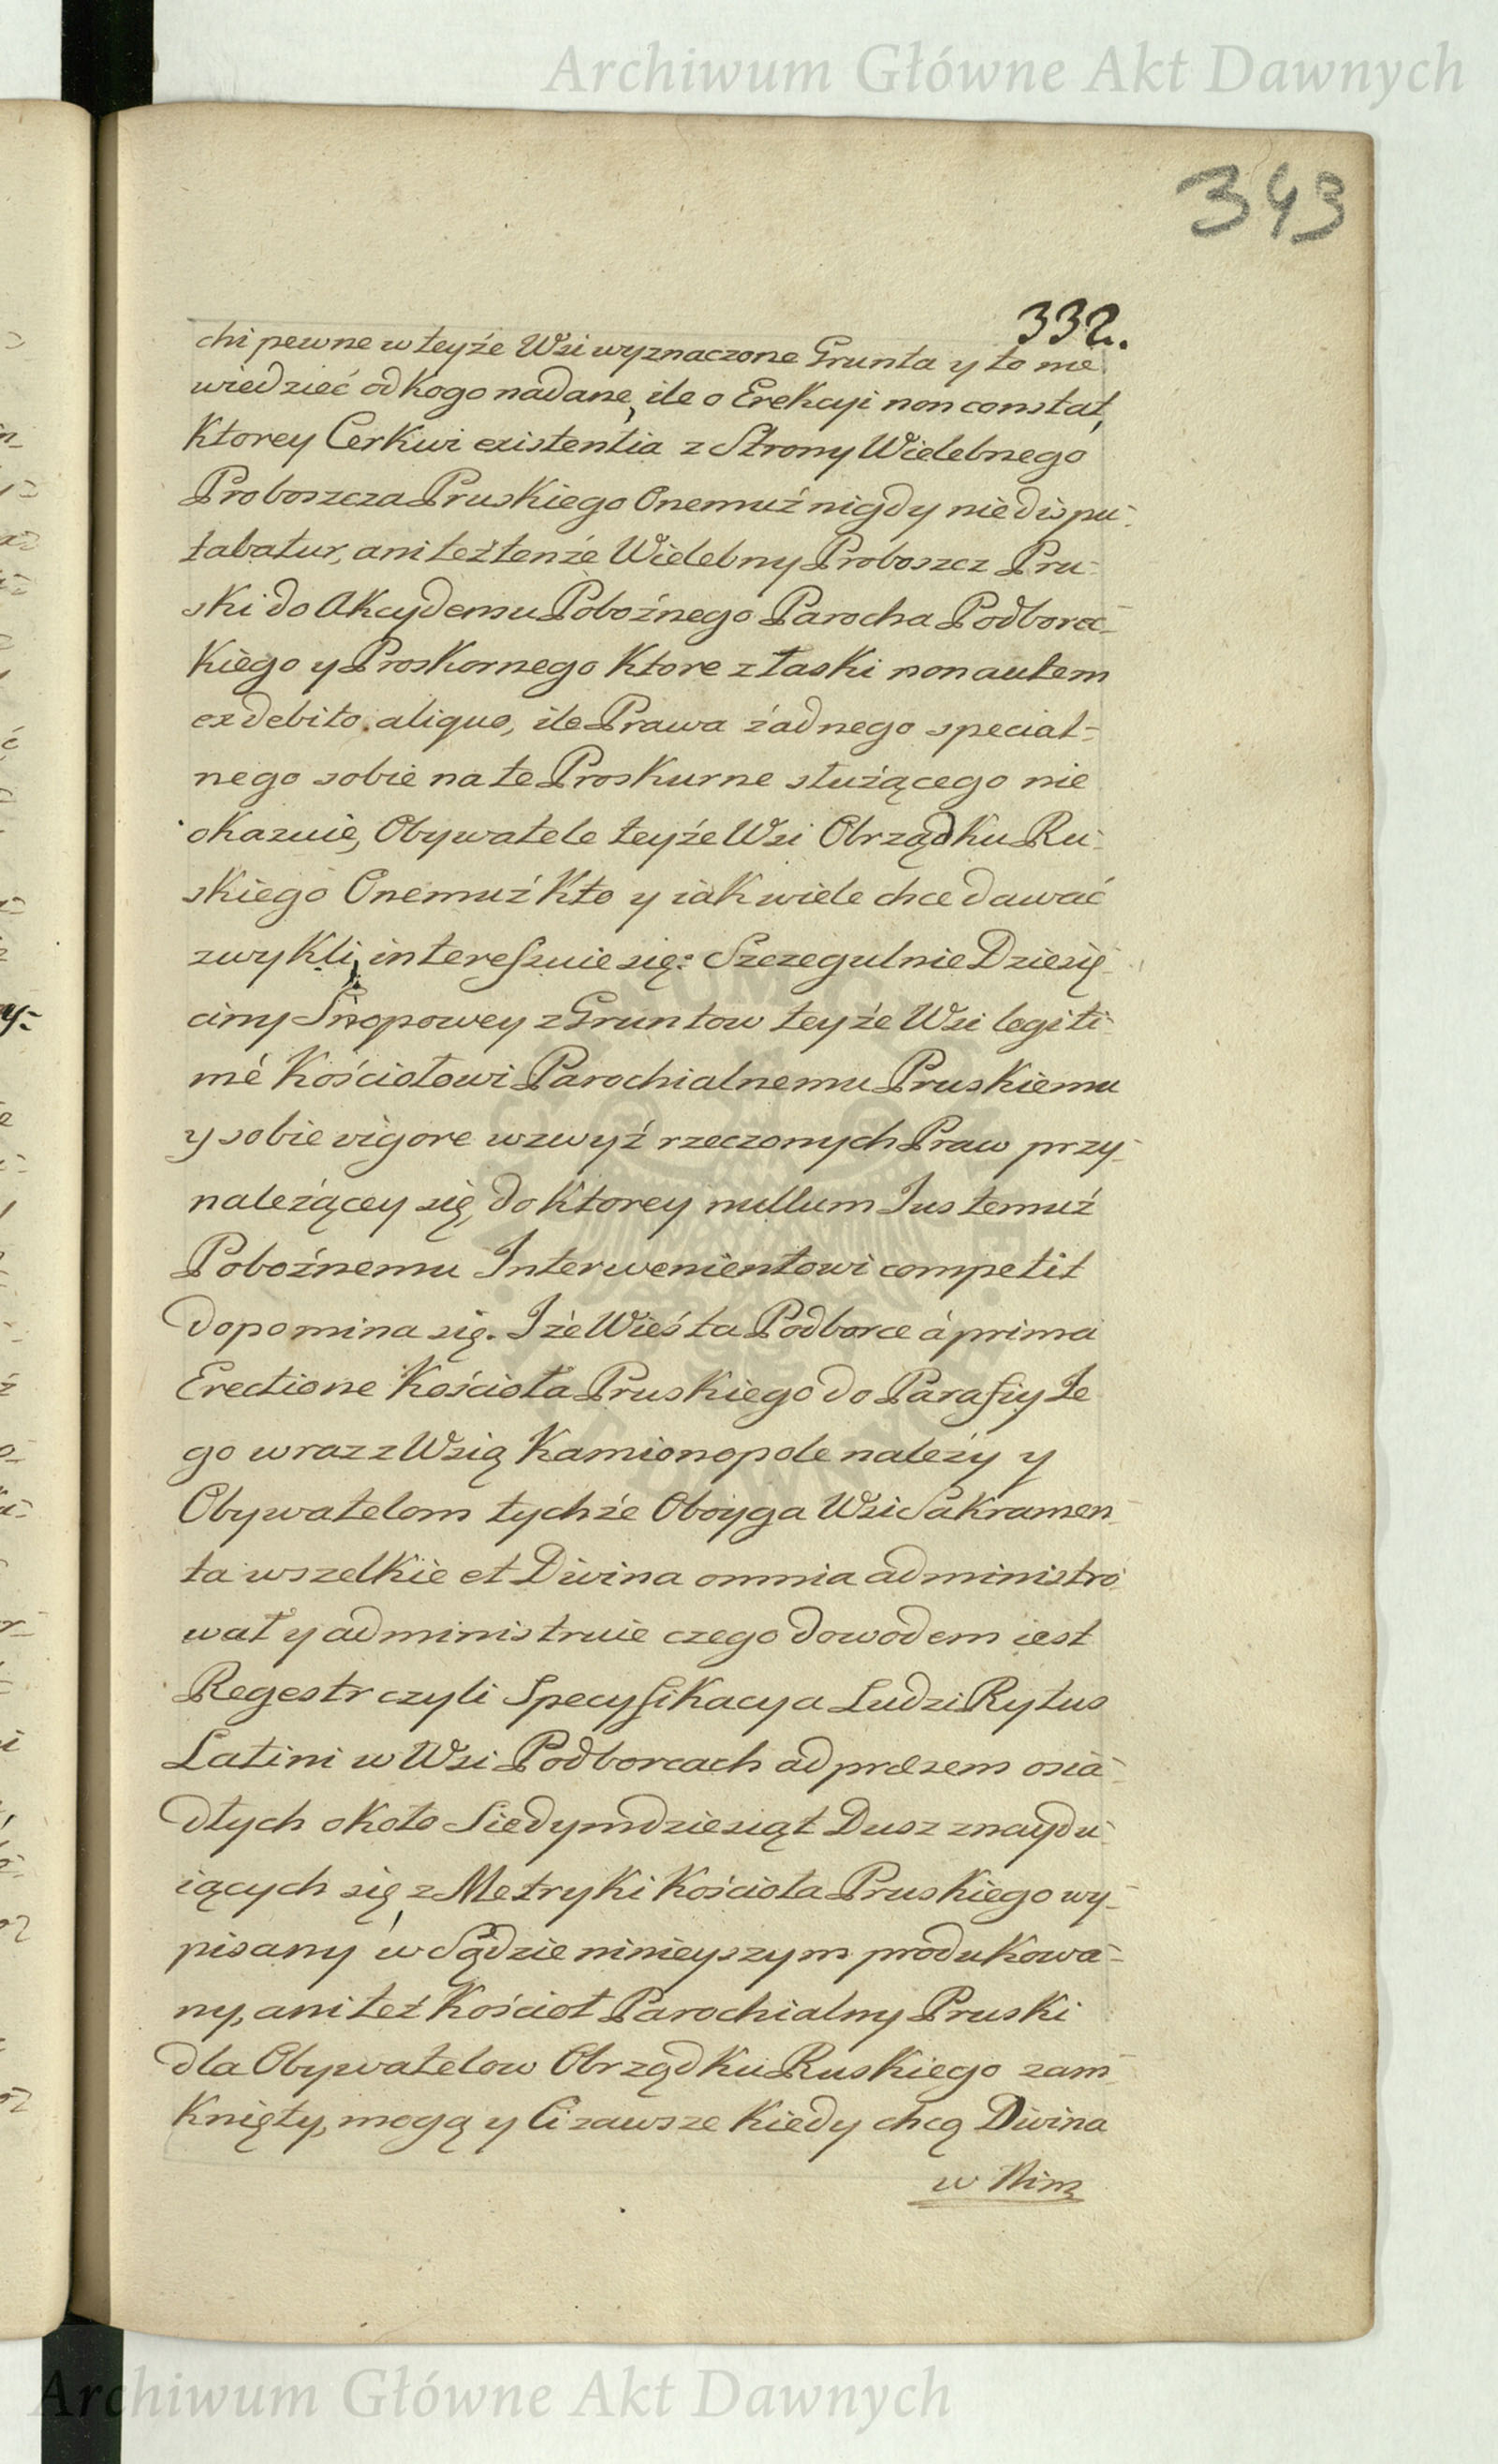 Archiwum Główne Akt Dawnych
343
332.
chi pewne w teyże Wsi wyznaczone Grunta y to nie
wiedzieć od kogo nadane, ile o Erekcyi non constat,
Ktorey Cerkwi existentia z Strony Wielebnego
Proboszcza Pruskiego Onemuż nigdy nie dispu-
tabatur, ani też tenże Wielebny Proboszcz Pru-
ski do Akcydensu Pobożnego Parocha Podborec-
kiego y Proskornego Ktore z łaski non autem
ex debito aliquo, ile Prawa żadnego special-
nego sobie na te Proskurne służącego nie
okazuie, Obywatele teyże Wsi Obrządku Ru-
skiego Onemuż Kto y iak wiele chce dawać
zwykli, interessuie się: Szczegulnie Dziesię-
ciny Snopowey z Gruntow teyże Wsi legiti-
mé Kościołowi Parochialnemu Pruskiemu
y sobie vigore wzwyż rzeczonych Praw przy-
należącey się, do Ktorey nullum Jus temuż
Pobożnemu Interwenientowi competit
dopomina się. Iże Wieś ta Podborce á prima
Erectione Kościoła Pruskiego do Parafiy Je
go wraz z Wsią Kamionopole należy y
Obywatelom tychże Oboyga Wsi Sakramen-
ta wszelkie et Divina omnia administro
wał y administruie czego dowodem iest
Regestr czyli Specyfikacya Ludzi Rytus
Latini w Wsi Podborcach ad præsens osia-
dłych około Siedymdziesiąt Dusz znaydu-
iących się, z Metryki Kościoła Pruskiego wy-
pisany w Sądzie ninieyszym produkowa-
ny, ani też Kościoł Parochialny Pruski
dla Obywatelow Obrządku Ruskiego zam-
knięty, mogą y Ci zawsze kiedy chcą Divina
w Nim
Archiwum Główne Akt Dawnych